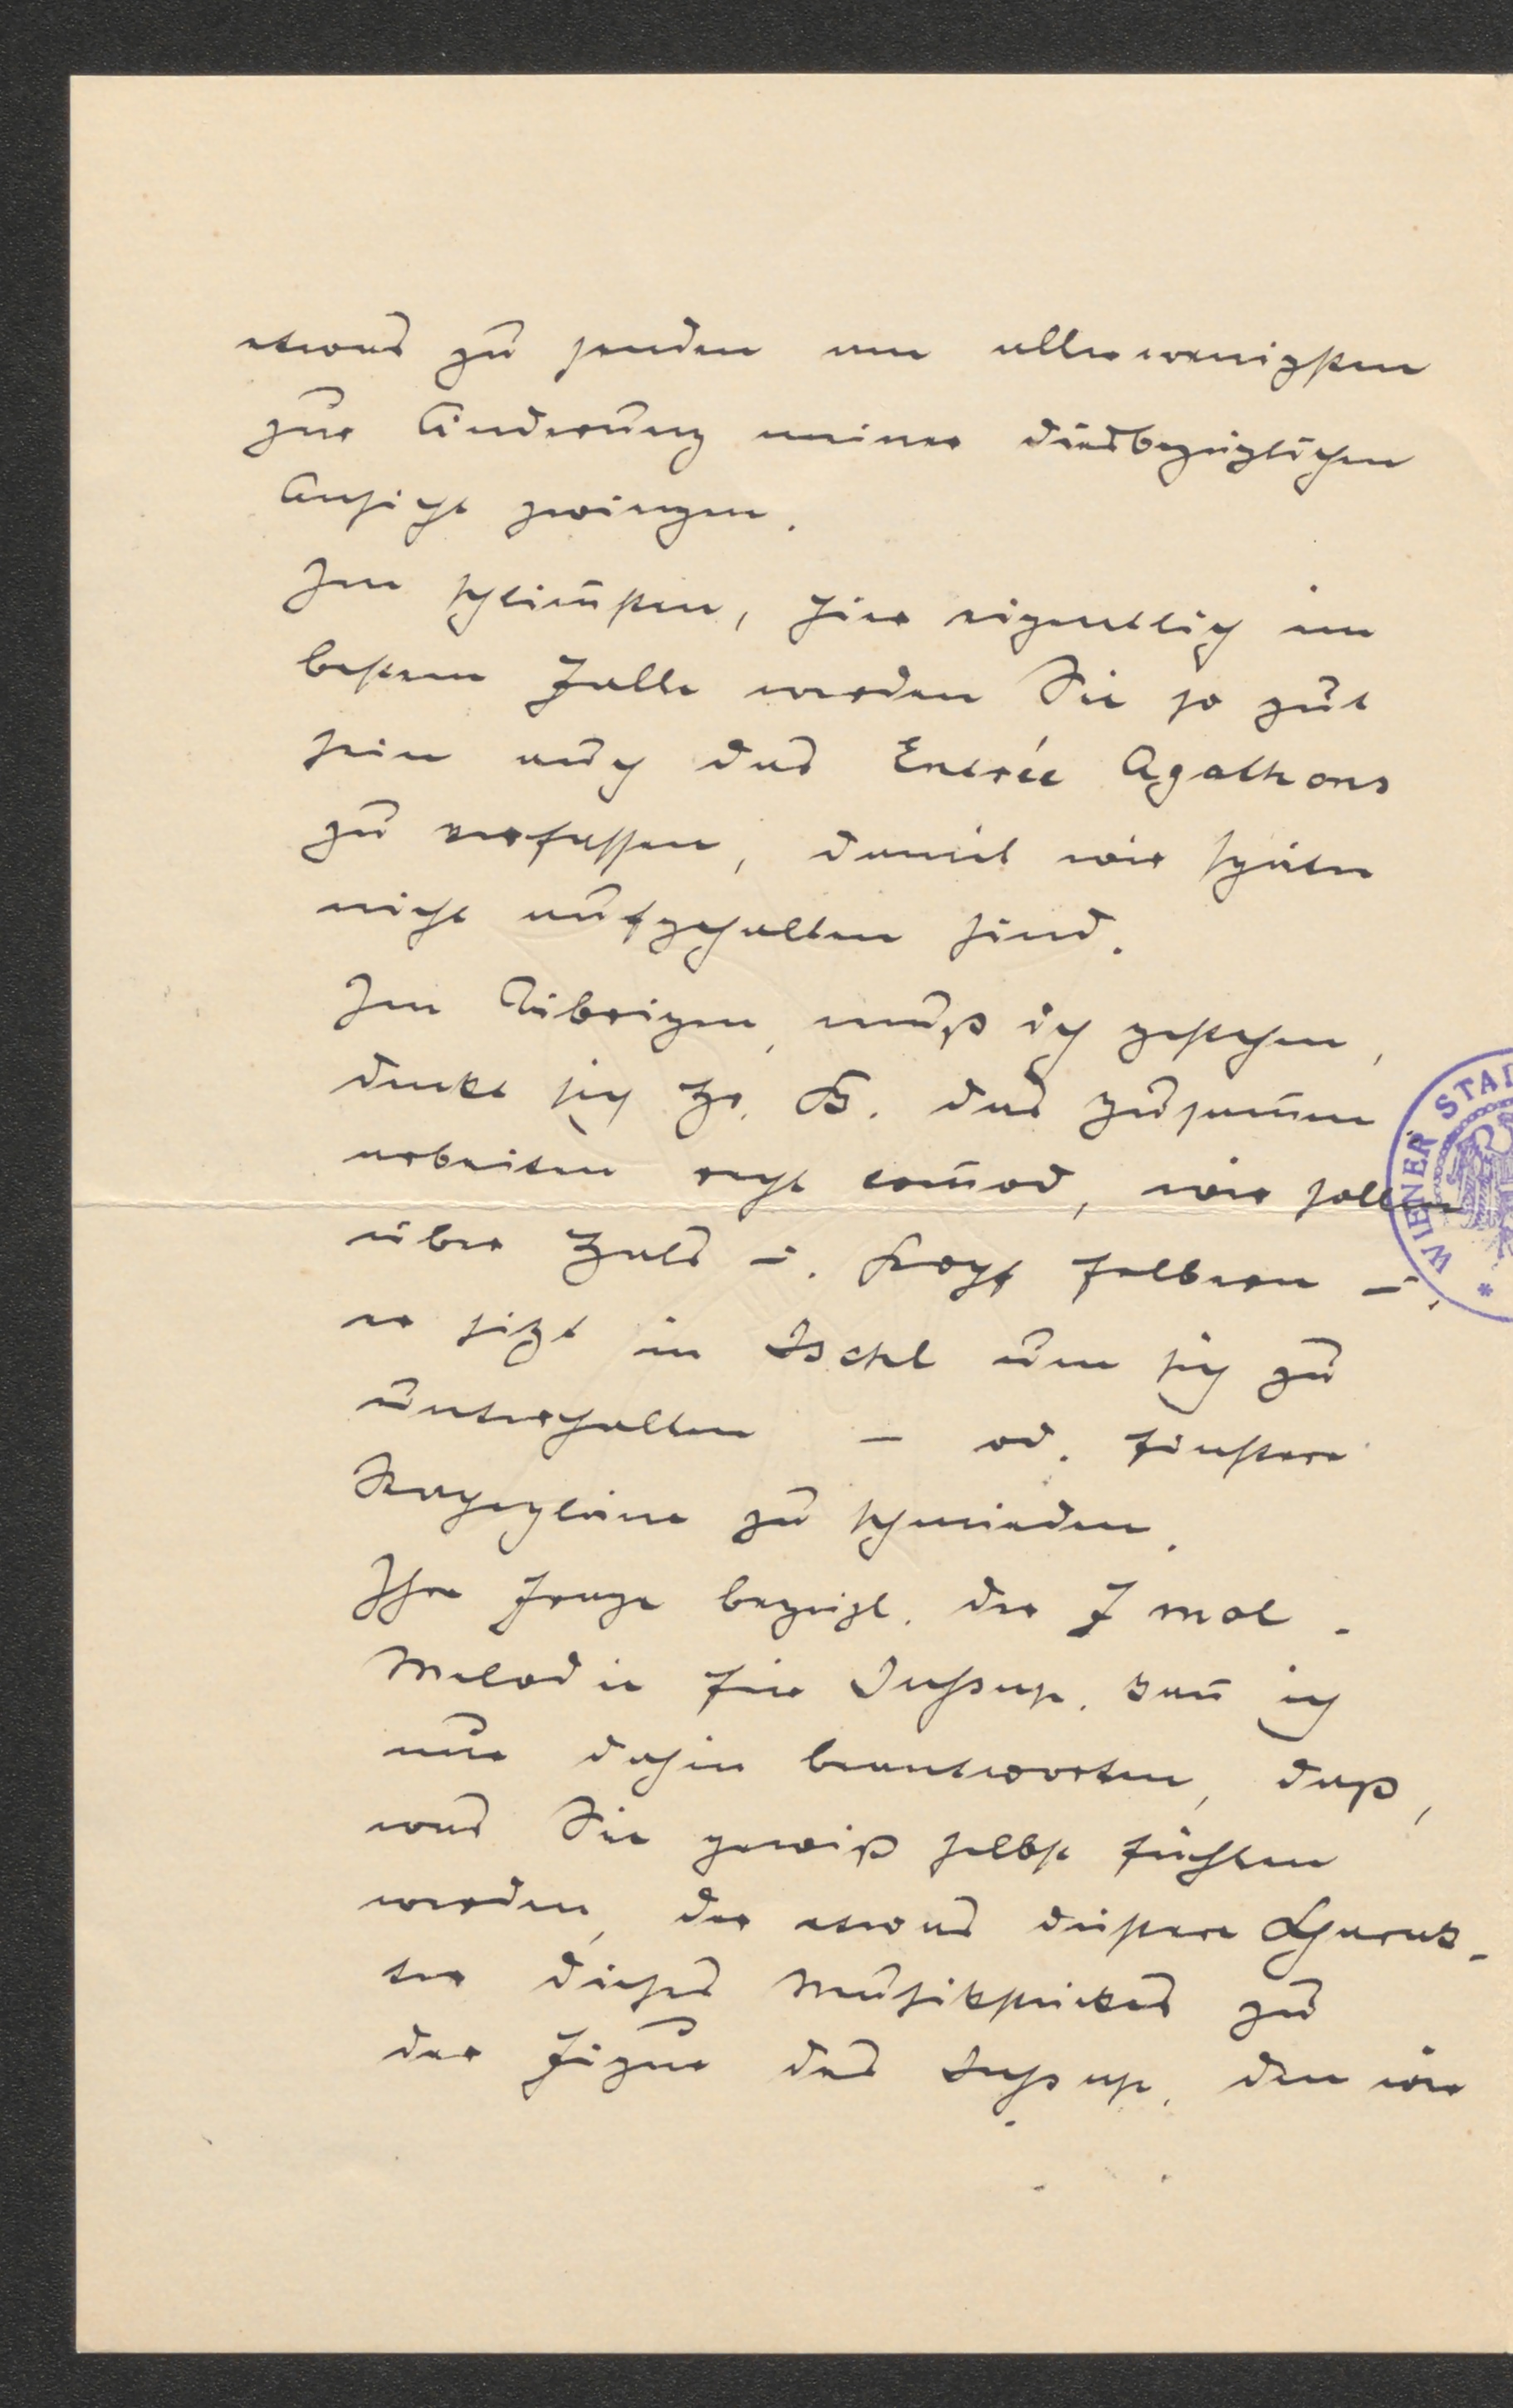 etwas zu senden am allerwenigsten
zur Änderung meiner diesbezüglichen
Ansicht zwingen.
Im schlim̅sten, hier eigentlich im
bestem Falle werden Sie so gut
sein auch das Entrée Agathons
zu verfassen, damit wir später
nicht aufgehalten sind.
Im Übrigen, muß ich gestehen,
denkt sich Hr. B. das Zusam̅en
arbeiten recht com̅od, wir sollen
über Hals u. Kopf selbern u.
er sitzt in Ischl um sich zu
unterhalten – od. finstere
Rachepläne zu schmieden.
Ihre Frage bezügl. der F mol -
Melodie für Jussup. kan̅ ich
nur dahin beantworten, daß,
was Sie gewiß selbst fühlen
werden, der etwas düstere Charak-
ter dieses Musikstückes zu
der Figur des Jussup, den wir
WIENER STAD